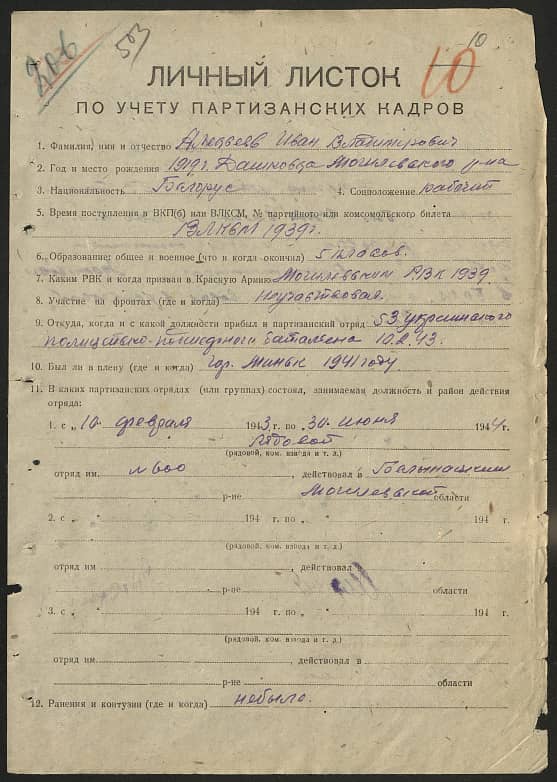 206
503
10
10
ЛИЧНЫЙ ЛИСТОК
ПО УЧЕТУ ПАРТИЗАНСКИХ КАДРОВ
1. Фамилия, имя и отчество Иван Владимирович
2. Год и место рождения 1919 г. Дашковца Могилевского р-на
3. Национальность Беларус 4. Соцположение рабочий
5. Время поступления в ВКП(б) или ВЛКСМ, № партийного или комсомольского билета
ВЛКСМ 1939 г.
6. Образование: общее и военное (что и когда окончил) 5 класов.
7. Каким РВК и когда призван в Красную Армию Могилевским РВК 1939
8. Участие на фронтах (где и когда) неучаствовал.
9. Откуда, когда и с какой должности прибыл в партизанский отряд 53 украинского
полицейско- батальена 10.2.43.
10. Был ли в плену (где и когда) гор. Минск 1941 году
11. В каких партизанских отрядах (или группах) состоял, занимаемая должность и район действия
отряда:
1. с „10 февраля 1943 г. по 30 июня 1944 г.
рядовой
(рядовой, ком. взвода и т. д.)
отряд им. №600, действовал в
р-не Могилевской области
2. с „ 194 г. по „ 194 г.
(рядовой, ком. взвода и т. д.)
отряд им. , действовал в
р-не области
3. с „ 194 г. по „ 194 г.
(рядовой, ком. взвода и т. д.)
отряд им. , действовал в
р-не области
12. Ранения и контузии (где и когда) небыло.